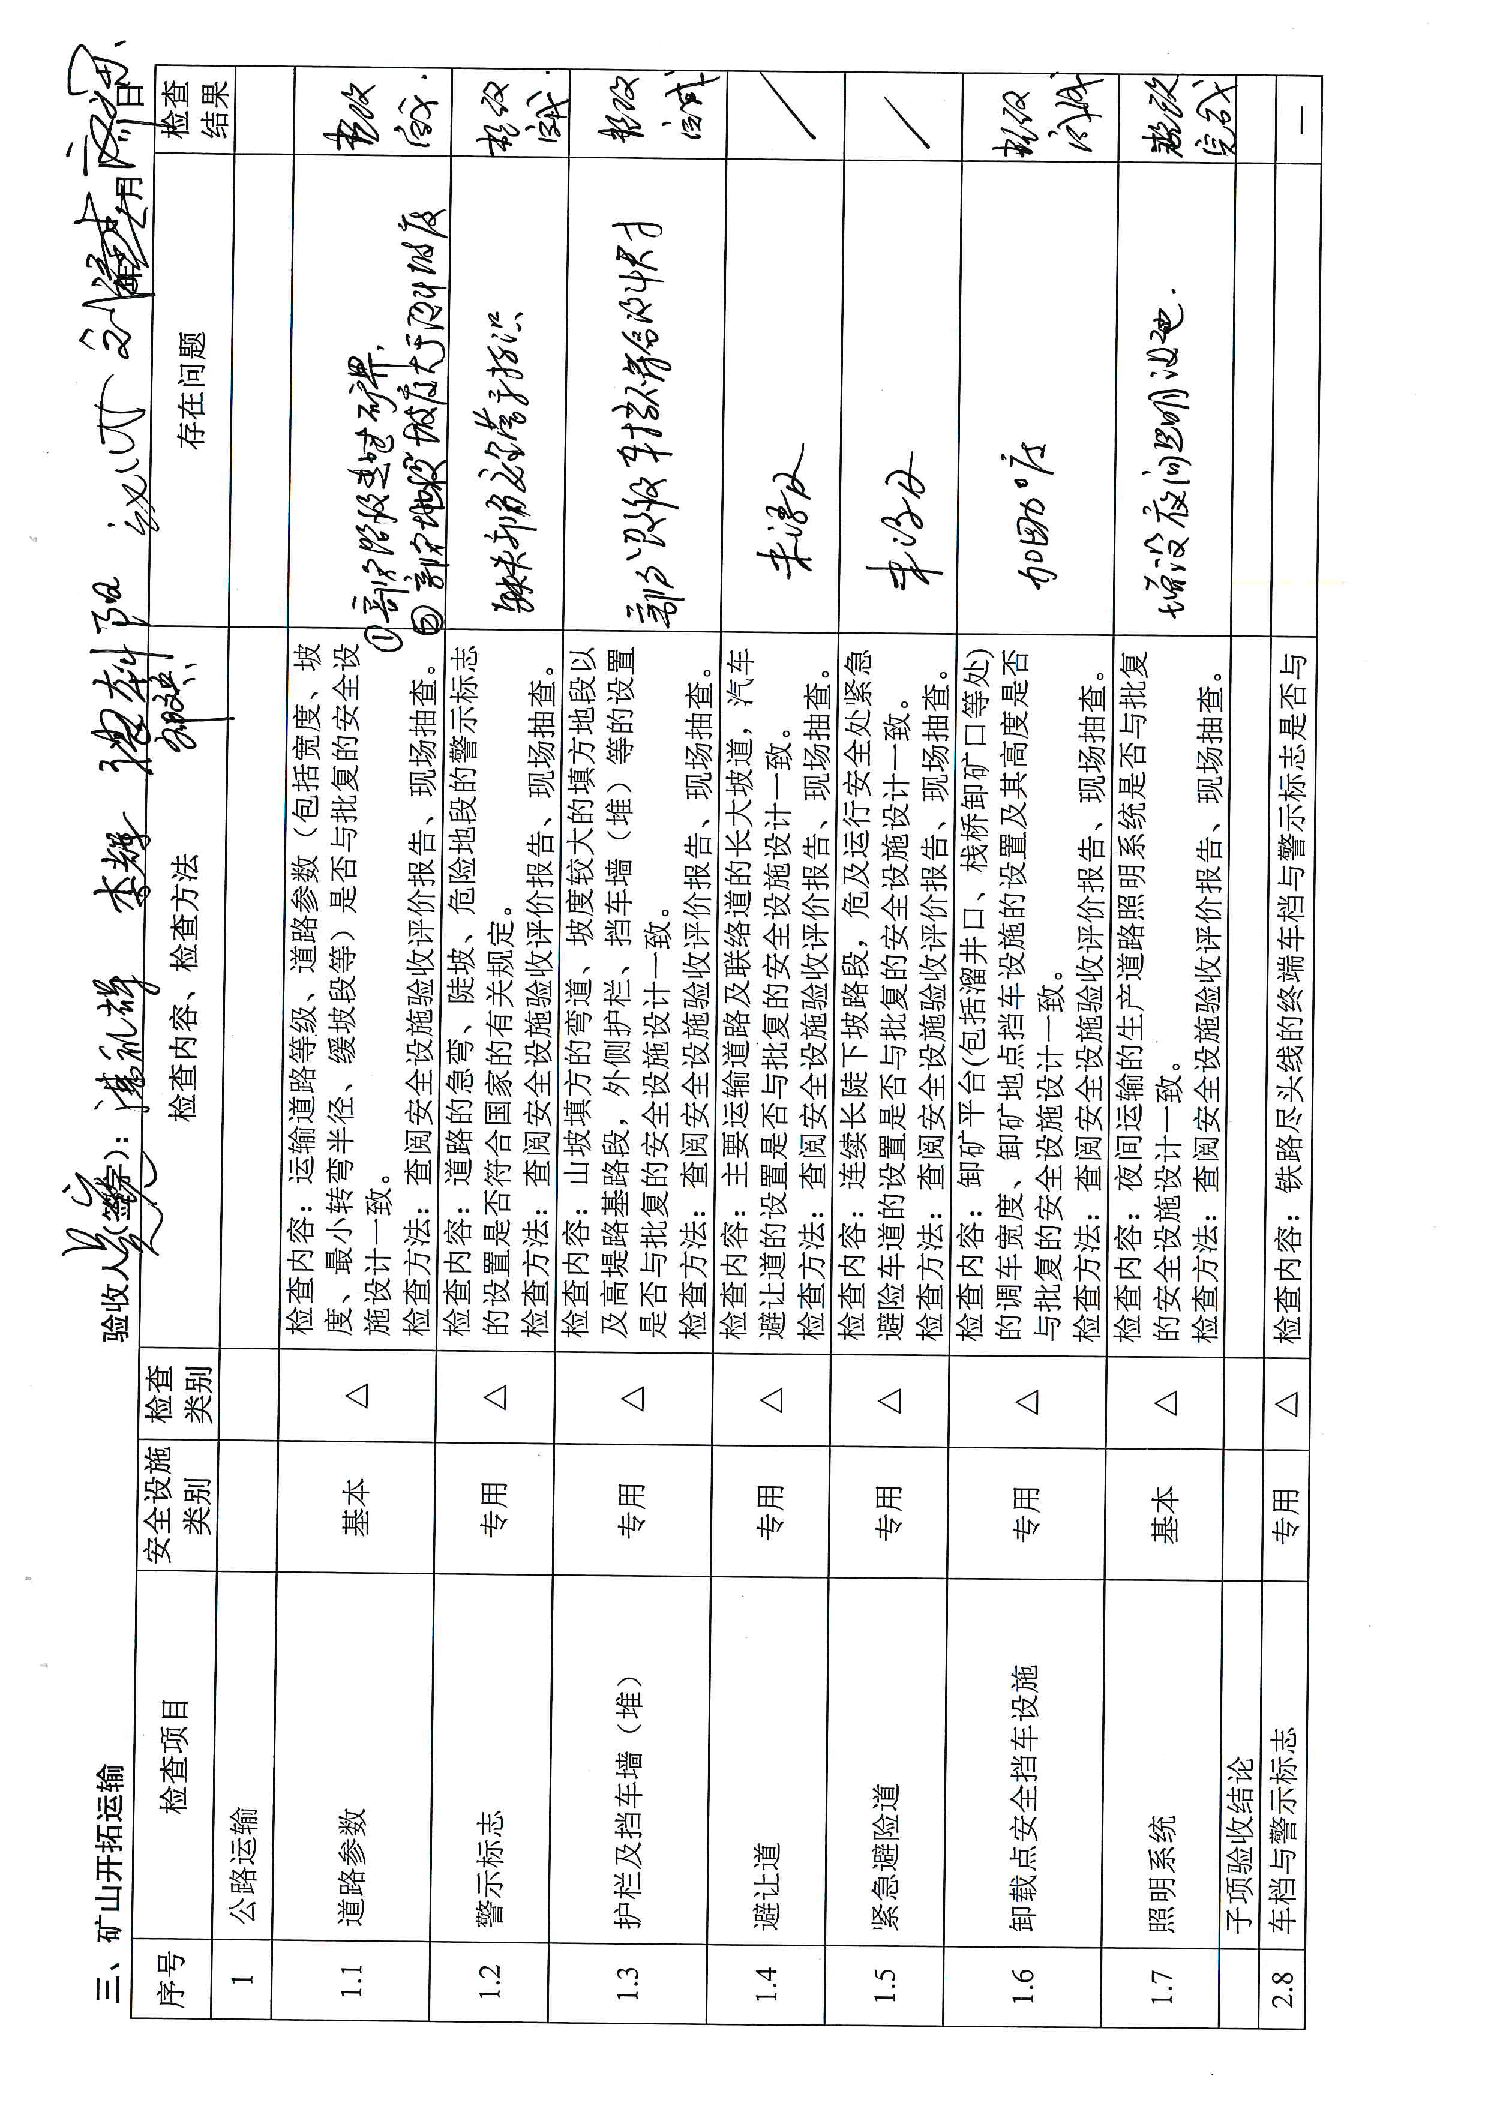 三、矿山开拓运输
验收人员(签字):
年 月 日
序号 检查项目 安全设施类别 检查类别 检查内容、检查方法 存在问题 检查结果
1 公路运输
1.1 道路参数 基本 △
检查内容：运输道路等级、道路参数（包括宽度、坡
度、最小转弯半径、缓坡段等）是否与批复的安全设
施设计一致。
检查方法：查阅安全设施验收评价报告、现场抽查。
①部分路段过窄
②部分地段坡度大于设计坡度
整改
完成.
1.2 警示标志 专用 △
检查内容：道路的急弯、陡坡、危险地段的警示标志
的设置是否符合国家的有关规定。
检查方法：查阅安全设施验收评价报告、现场抽查。
缺失部分安全警示标识
整改
完成
1.3 护栏及挡车墙（堆） 专用 △
检查内容：山坡填方的弯道、坡度较大的填方地段以
及高堤路基路段，外侧护栏、挡车墙（堆）等的设置
是否与批复的安全设施设计一致。
检查方法：查阅安全设施验收评价报告、现场抽查。
部分路段车挡不符合设计尺寸
整改
完成
1.4 避让道 专用 △
检查内容：主要运输道路及联络道的长大坡道，汽车
避让道的设置是否与批复的安全设施设计一致。
检查方法：查阅安全设施验收评价报告、现场抽查。
未涉及
/
1.5 紧急避险道 专用 △
检查内容：连续长陡下坡路段，危及运行安全处紧急
避险车道的设置是否与批复的安全设施设计一致。
检查方法：查阅安全设施验收评价报告、现场抽查。
未涉及
/
1.6 卸载点安全挡车设施 专用 △
检查内容：卸矿平台(包括溜井口、栈桥卸矿口等处)
的调车宽度、卸矿地点挡车设施的设置及其高度是否
与批复的安全设施设计一致。
检查方法：查阅安全设施验收评价报告、现场抽查。
加固
整改
完成
1.7 照明系统 基本 △
检查内容：夜间运输的生产道路照明系统是否与批复
的安全设施设计一致。
检查方法：查阅安全设施验收评价报告、现场抽查。
增设夜间照明设施.
整改
完成
子项验收结论
2.8 车档与警示标志 专用 △
检查内容：铁路尽头线的终端车档与警示标志是否与
—